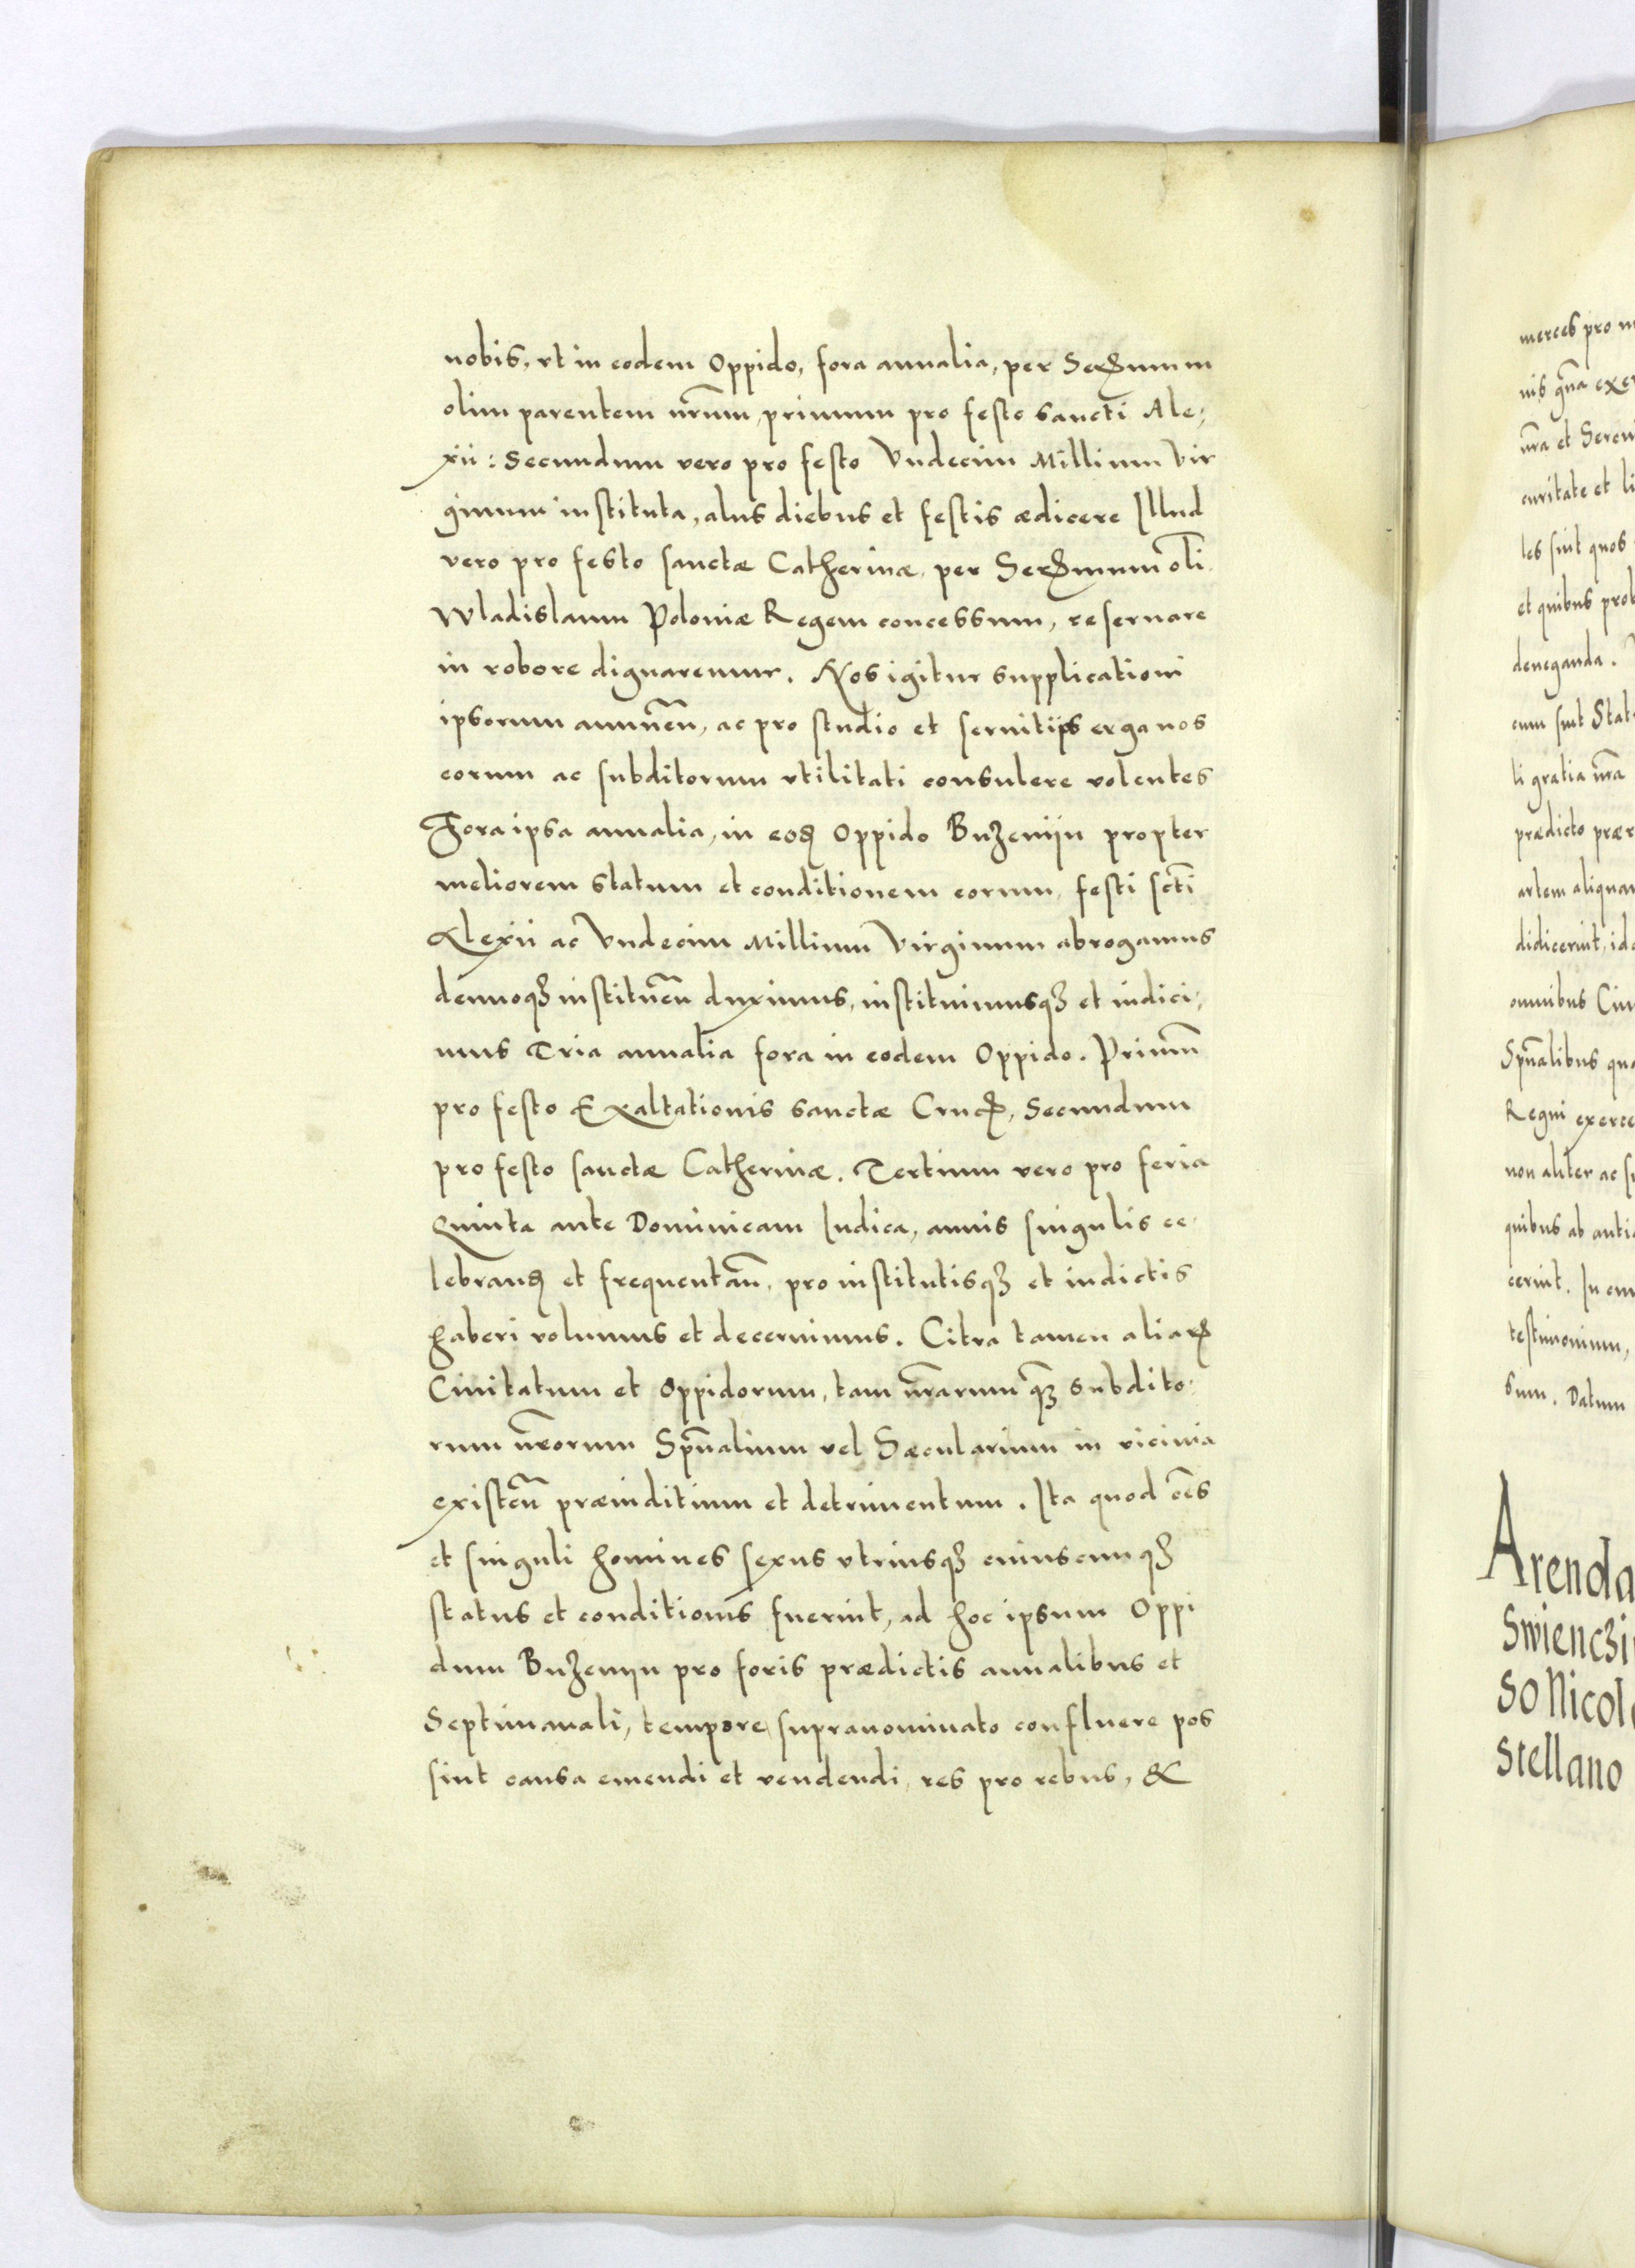 nobis, vt in eodem Oppido, fora annalia, per Serenmum
olim parentem nrm̄, primum pro festo sancti Ale,
xii: Secundum vero pro festo Vndecim Millium Vir
ginum instituta, alijs diebus et festis ædicere Illud
vero pro festo sanctæ Catherinæ, per Serenmum oli
Wladislaum Poloniæ Regem concessum, reseruare
in robore dignaremur. Nos igitur supplicationi
ipsorum annuen̄, ac pro studio et seruitijs erga nos
eorum ac subditorum vtilitati consulere volentes
Fora ipsa annalia, in eod Oppido Buzeniin propter
meliorem statum et conditionem eorum, festi scti
Alexii ac Vndecim Millium Virginum abrogamus
denuoqz instituen̄ duximus, instituimusqz et indici,
mus Tria annalia fora in eodem Oppido. Primum̄
pro festo Exaltationis sanctæ Crucis, Secundum
pro festo sanctæ Catherinæ. Tertium vero pro feria
Quinta ante Dominicam Iudica, annis singulis ce,
lebrand et frequentan̄, pro institutisqz et indictis
haberi volumus et decernimus. Citra tamen aliarꝝ
Ciuitatum et Oppidorum, tam nr̄arum qz̄ subdito,
rum nr̄orum Spūalium vel Sæcularium in vicinia
existen̄ præiuditium et detrimentum. Ita quod oēs
et singuli homines sexus vtriusqz cuiuscunqz
status et conditionis fuerint, ad hoc ipsum Oppi
dum Buzeniin pro foris prædictis annalibus et
Septimanali, tempore supranominato confluere pos
sint causa emendi et vendendi, res pro rebus, &
merces pro
nis gn̄a
nr̄a et
curitate et
les sint quos
et quibus
deneganda.
cum sint
li gratia nr̄a
prædicto
artem
didicerint,
omnibus
Spūalibus
Regni
non aliter ac
quibus ab
cerint. In
testimonium,
sum. Datum
Arenda
Swienczi
so Nicol
Stellano